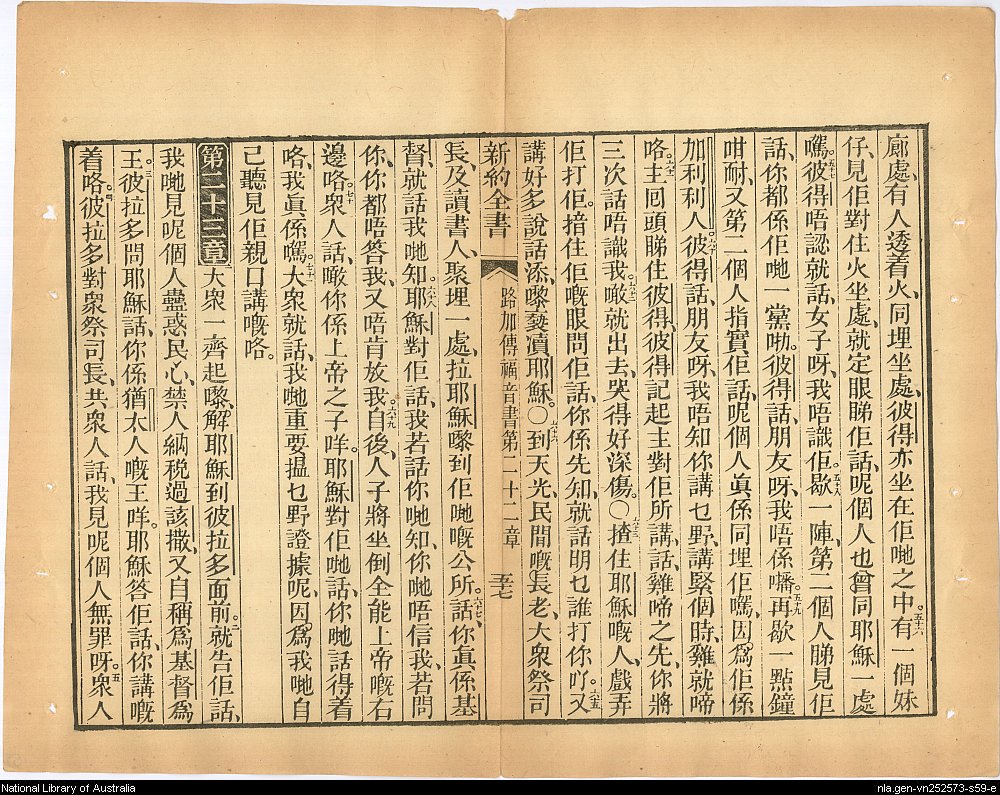 廊處、有人透着火、同埋坐處、彼得亦坐在佢哋之中。五十六有一個妹
仔、見佢對住火坐處、就定眼睇佢話、呢個人也曾同耶穌一處
嚛。五十七彼得唔認就話、女子呀、我唔識佢。五十八歇一陣、第二個人睇見佢
話、你都係佢哋一黨嘞。彼得話、朋友呀、我唔係嚩。五十九再歇一點鐘
咁耐、又第二個人指實佢話、呢個人眞係同埋佢嚛、因爲佢係
加利利人。六十彼得話、朋友呀、我唔知你講乜野、講緊個時、雞就啼
咯。六十一主囘頭睇住彼得、彼得記起主對佢所講話、雞啼之先、你將
三次話唔識我。六十二噉就出去、哭得好深傷。〇六十三揸住耶穌嘅人、戲弄
佢打佢。揞住佢嘅眼問佢話、你係先知、就話明乜誰打你吖。六十五又
講好多說話添、嚟褻瀆耶穌。〇六十六到天光、民間嘅長老、大衆祭司
新約全書 路加傳福音書第二十二章 五十七
長、及讀書人、聚埋一處、拉耶穌嚟到佢哋嘅公所。六十七話、你眞係基
督、就話我哋知。六十八耶穌對佢話、我若話你哋知、你哋唔信我、若問
你、你都唔答我、又唔肯放我。六十九自後、人子將坐倒全能上帝嘅右
邊咯。七十衆人話、噉你係上帝之子咩。耶穌對佢哋話、你哋話得着
咯、我眞係嚛。七十一大衆就話、我哋重要搵乜野證據呢、因爲我哋自
己聽見佢親口講嘅咯。
第二十三章 一大衆一齊起嚟、解耶穌到彼拉多面前。二就告佢話、
我哋見呢個人蠱惑民心、禁人納稅過該撒、又自稱爲基督爲
王。三彼拉多問耶穌話、你係猶太人嘅王咩。耶穌答佢話、你講嘅
着咯。四彼拉多對衆祭司長、共衆人話、我見呢個人無罪呀。五衆人
National Library of Australia
nla.gen-vn252573-s59-e